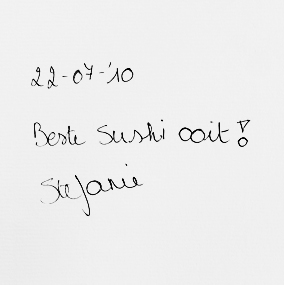 22-07-'10
Beste Sushi ooit!
Stefanie